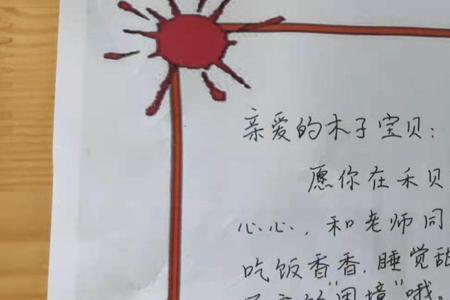 亲爱的木子宝贝：
愿你在禾贝
心心，和老师同
吃饭香香，睡觉甜
"困境"哦。